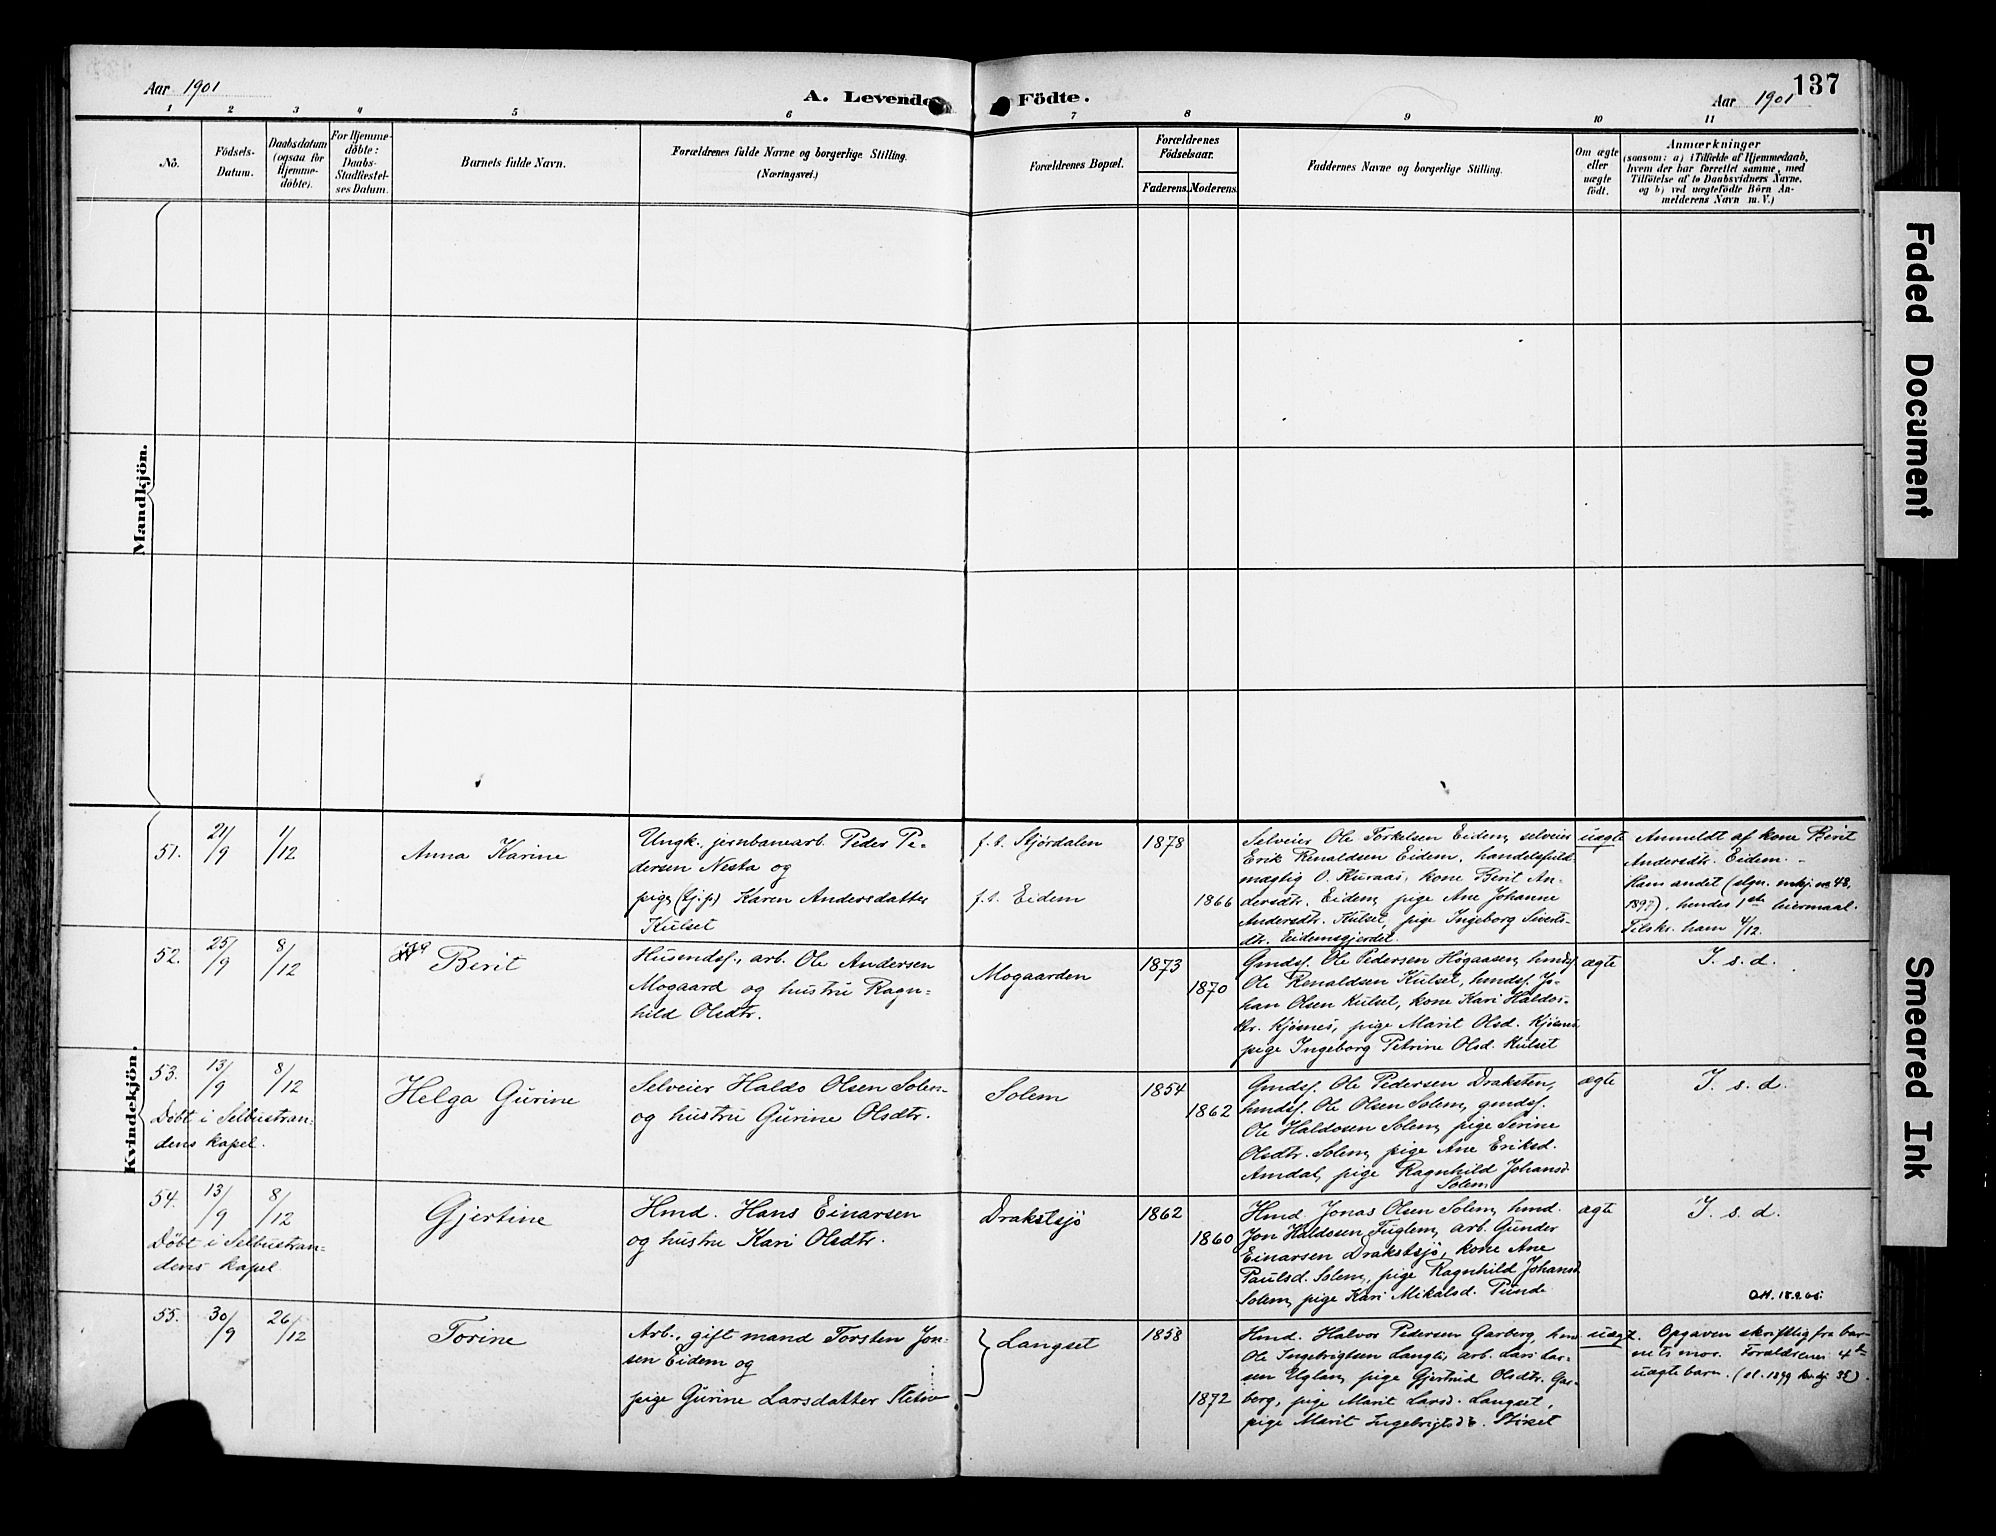 Aar 1901
A. Levende Födte.
Aar 1901
137
1 2 3 4 5 6 7 8 9 10 11
No.
Födsels-
Datum.
Daabsdatum
(ogsaa for
Hjemme-
döbte).
For Hjemme-
döbte:
Daabs-
Stadfæstel-
ses Datum.
Barnets fulde Navn.
Forældrenes fulde Navne og borgerlige Stilling.
(Næringsvei.)
Forældrenes Bopæl.
Forældrenes
Födselsaar.
Faderens. Moderens.
Faddernes Navne og borgerlige Stilling.
Om ægte
eller
uægte
födt.
Anmærkninger
(saasom: a) i Tilfælde af Hjemmedaab,
hvem der har forrettet samme, med
Tilföielse af to Daabsvidners Navne,
og b) ved uægtefödte Börn An-
melderens Navn m. V.)
Mandkjön.
Kvindekjön.
51.
21/9
1/12
Anna Karine
Ungk. jernbanearb. Peder Pe-
dersen Nesta og
pige (tj.p) Karen Andersdatter
Kulset
f. s. Stjørdalen
f. s. Eidem
1878
1866
Selveier Ole Torkelsen Eidem, selveier
Erik Renaldsen Eidem, handelsfuld-
mægtig O. Kuraas, kone Berit An-
dersdtr. Eidem, pige Ane Johanne
Andersdtr. Kulset, pige Ingeborg Sivert-
dtr. Eidemsgjerdet.
uægte
Anmeldt af kone Berit
Andersdtr. Eidem. -
Hans andet (slgn. mkj. no 48,
1897), hendes 1ste leiermaal.
Tilskr. ham 4/12.
52.
25/9
8/12
Berit
Husmdsf., arb. Ole Andersen
Mogaard og hustru Ragn-
hild Olsdtr.
Mogaarden
1873
1870
Gmdsf. Ole Pedersen Høgaasen, hmdsf.
Ole Renaldsen Kulset, hmdsf. Jo-
han Olsen Kulset, kone Kari Haldor-
dtr. Kjøsnes, pige Marit Olsd. Kjøsnes
pige Ingeborg Petrine Olsd. Kulset
ægte
I. s. d.
53.
13/9
8/12
Døbt i Selbustran-
dens kapel.
Helga Gurine
Selveier Haldo Olsen Solem
og hustru Gurine Olsdtr.
Solem
1854
1862
Gmdsf. Ole Pedersen Draksten,
hmdsf. Ole Olsen Solem, gmdsf.
Ole Haldosen Solem, pige Serine
Olsdtr. Solem, pige Ane Eriksd.
Amdal, pige Ragnhild Johansd.
Solem
ægte
I. s. d.
54.
13/9
8/12
Døbt i Selbustran-
dens kapel.
Gjertine
Hmd. Hans Einarsen
og hustru Kari Olsdtr.
Drakstsjø
1862
1860
Hmd. Jonas Olsen Solem, hmd.
Jon Haldosen Fuglem, arb. Gunder
Einarsen Drakstsjø, kone Ane
Paulsd. Solem, pige Ragnhild Johansd.
Solem, pige Kari Mikalsd.
ægte
I. s. d.
55.
30/9
26/12
Torine
Arb., gift mand Torsten Jon-
sen Eidem og
pige Gurine Larsdatter
Langset
1858
1872
Hmd. Halvor Pedersen Garberg, hmd.
Ole Ingebrigtsen Langli, arb. Lars Lar-
sen Uglan, pige Gjertrud Olsdtr. Gar-
berg, pige Marit Larsd. Langset,
pige Marit Ingebrigtsdtr.
uægt.
Opgaven skriftlig fra bar-
nets mor. Forældrenes 4de
uægte barn.
Faded Document
Smeared Ink